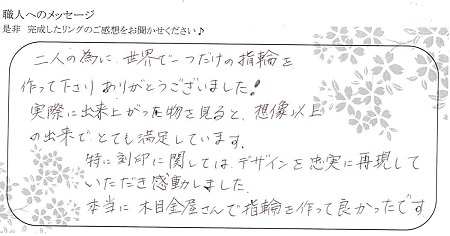 職人へのメッセージ
是非 完成したリングのご感想をお聞かせください♪
二人の為に、世界で一つだけの指輪を
作って下さりありがとうございました!
実際に出来上がった物を見ると、想像以上
の出来でとても満足しています。
特に刻印に関しては、デザインを忠実に再現して
いただき感動しました。
本当に木目金屋さんで指輪を作って良かったです